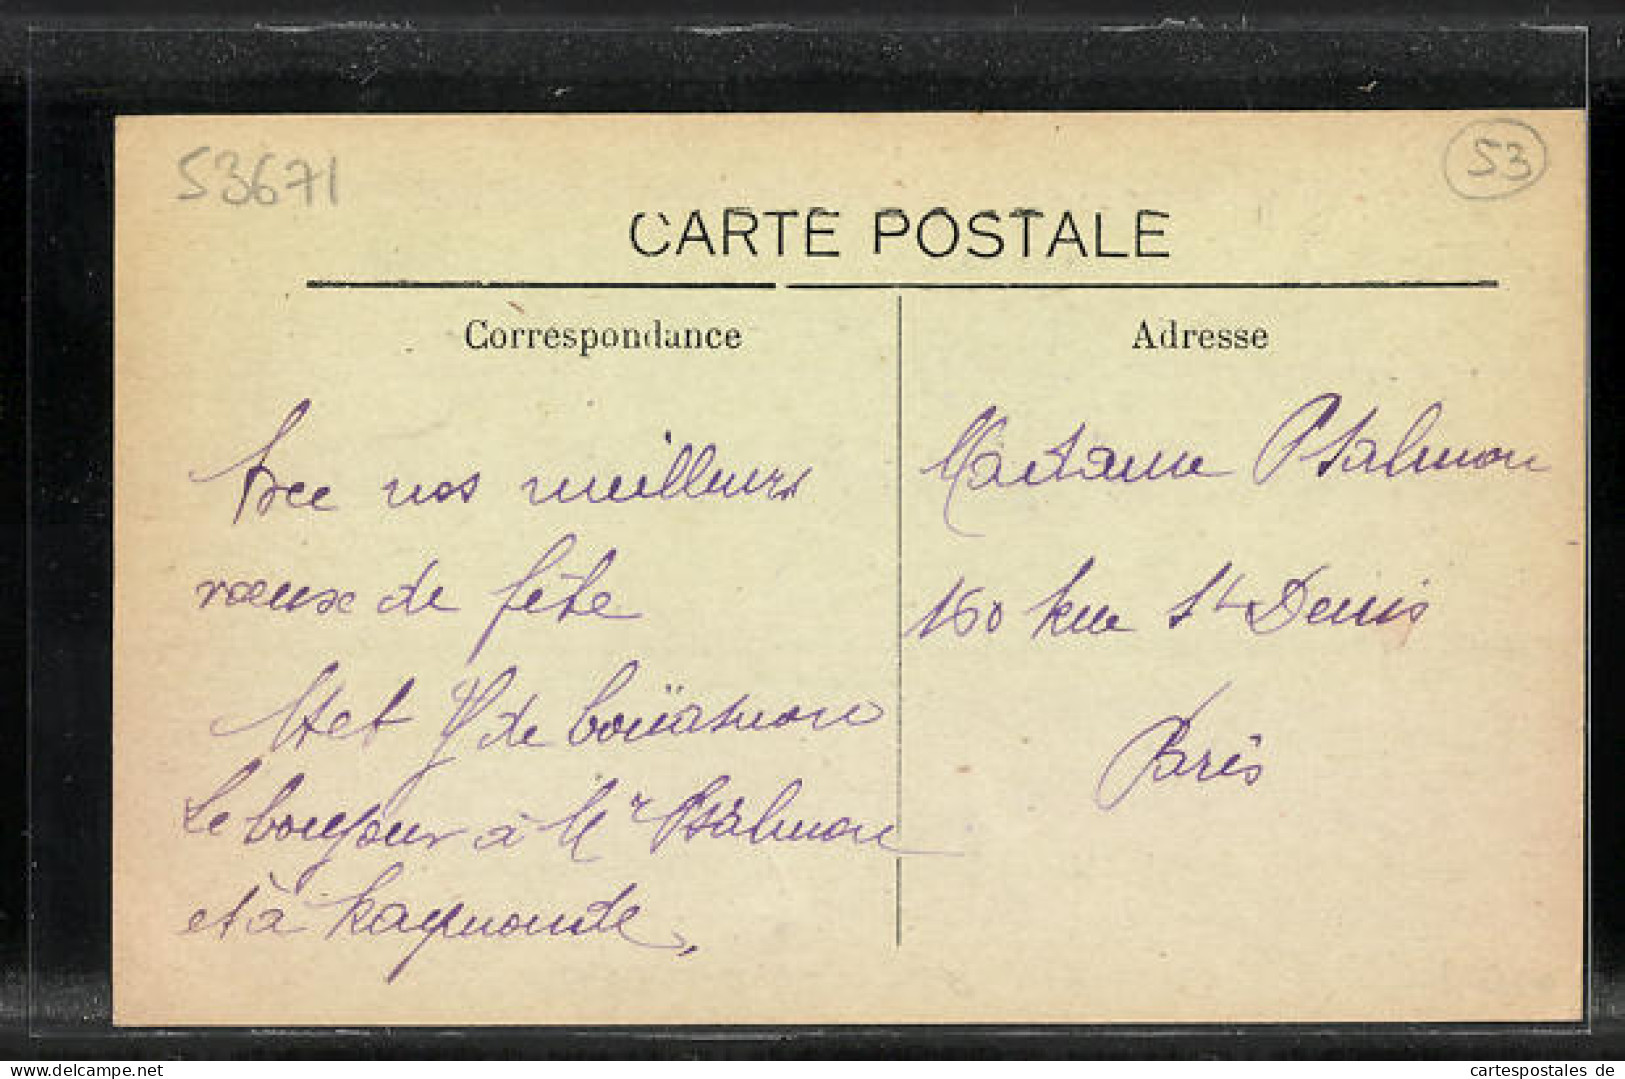 53671
53
CARTE POSTALE
Correspondance
Adresse
Avec nos meilleurs
vœux de fête
et de
Le bonjour à Mr Psalmon
et à Raymonde,
Madame Psalmon
160 Rue St Denis
Paris
www.cartespostales.de
cartespostales de